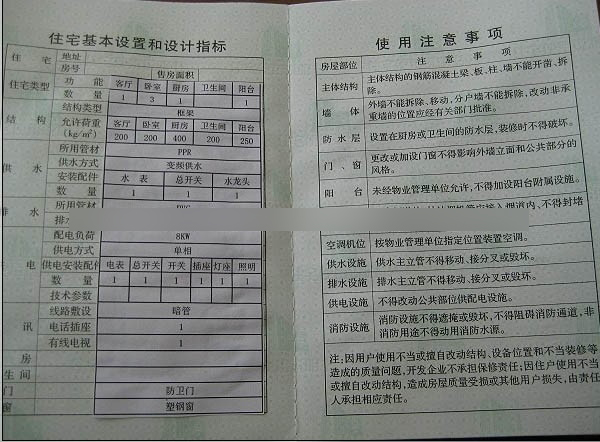 住宅基本设置和设计指标
住 宅 地址
房号 售房面积
住宅类型 功能 客厅 卧室 厨房 卫生间 阳台
数量 1 3 1 1
结构类型 框架
结 构 允许荷重 客厅 卧室 厨房 卫生间 阳台
(kg/m²) 200 200 400 200 250
所用管材 PPR
供水方式 变频供水
供 水 安装配件 水表 总开关 水龙头
数量 1 1 1
排 水 所用管材
配电负荷 8KW
供电方式 单相
电 供电安装配件 电表 总开关 开关 插座 灯座 照明
数量 1 1 1 1 1 1
技术参数
线路敷设 暗管
讯 电话插座 1
有线电视 1
房
生 间
门 防卫门
窗 塑钢窗
使用注意事项
房屋部位 注意事项
主体结构 主体结构的钢筋混凝土梁、板、柱、墙不能开凿、拆
除。
墙 体 外墙不能拆除、移动,分户墙不能拆除,改动非承
重墙的位置应经有关部门批准。
防水层 设置在厨房或卫生间的防水层,装修时不得破坏。
门、窗 更改或加设门窗不得影响外墙立面和公共部分的
风格。
阳 台 未经物业管理单位允许,不得加设阳台附属设施。
内、不得封堵
空调机位 按物业管理单位指定位置装置空调。
供水设施 供水主立管不得移动、接分叉或毁坏。
排水设施 排水主立管不得移动、接分叉或毁坏。
供电设施 不得改动公共部位供配电设施。
消防设施 消防设施不得遮掩或毁坏,不得阻碍消防通道,非
消防用途不得动用消防水源。
注:因用户使用不当或擅自改动结构、设备位置和不当装修等
造成的质量问题,开发企业不承担保修责任;因住户使用不当
或擅自改动结构,造成房屋质量受损或其他用户损失,由责任
人承担相应责任。